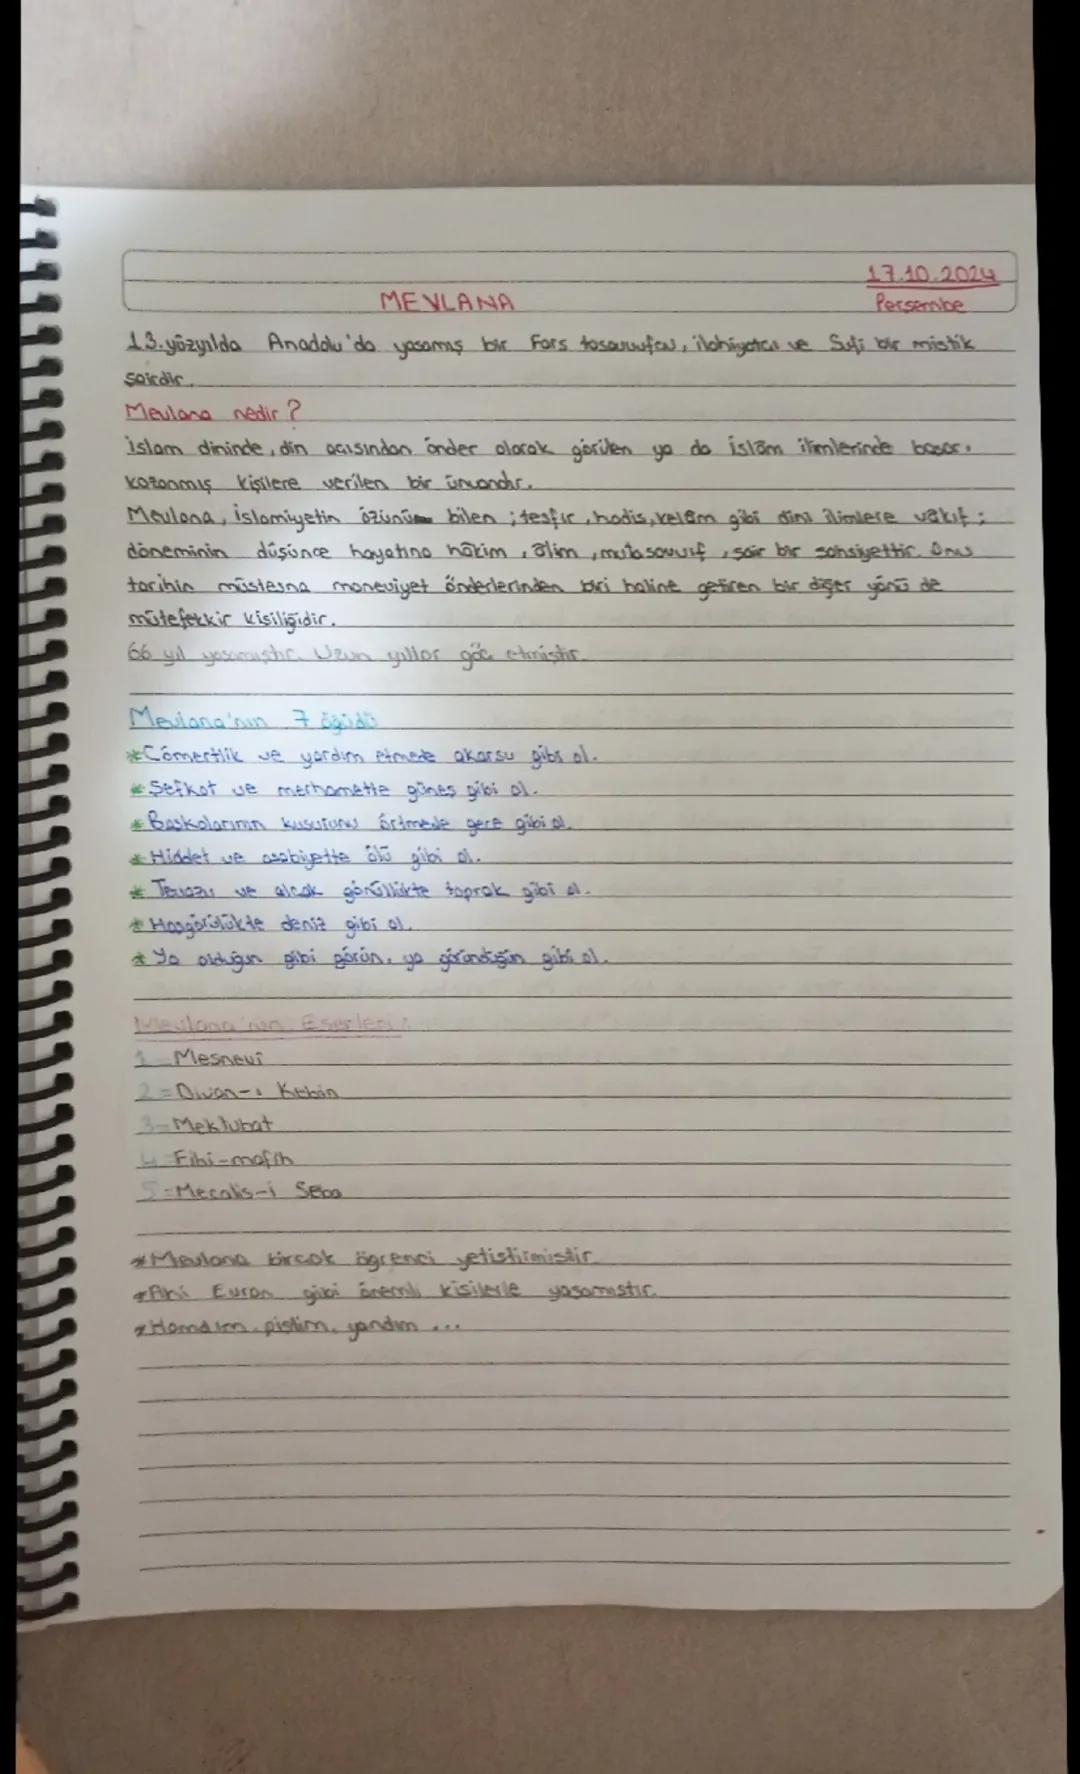 17.10.2024
MEVLANA Perşembe
13.yüzyılda Anadolu'da yaşamış bir Fars tasavvufcu, ilahiyatcı ve Sufi bir mistik
şairdir.
Mevlana nedir?
islam dininde, din açısından önder olarak görülen ya da İslâm ilimlerinde başarı
kazanmış kişilere verilen bir ünvandır.
Mevlana, islamiyetin özünü bilen ; tesfir, hadis, kelâm gibi dini ilimlere vakıf ;
döneminin düşünce hayatına hâkim, âlim, mutasavvıf, şair bir şahsiyettir. Onu
tarihin müstesna maneviyet önderlerinden biri haline getiren bir diğer yönü de
mütefekkir kişiliğidir.
66 yıl yaşamıştır. Uzun yıllar göç etmiştir.
Mevlana'nın 7 öğüdü
*Cömertlik ve yardım etmede akarsu gibi ol.
*Şefkat ve merhamette güneş gibi ol.
*Başkalarının kusurunu örtmede gece gibi ol.
*Hiddet ve asabiyette ölü gibi ol.
*Tevazu ve alçak gönüllükte toprak gibi ol.
*Hoşgörülükte deniz gibi ol.
*Ya olduğun gibi görün, ya göründüğün gibi ol.
Mevlana'nın Eserleri:
1-Mesnevî
2-Divan-ı Kebin
3-Mektubat
4-Fihi-mafih
5-Mecalis-i Seba
*Mevlana birçok öğrenci yetiştirmiştir.
*Ahi Evran gibi önemli kişilerle yaşamıştır.
*Hamdım, piştim, yandım ...